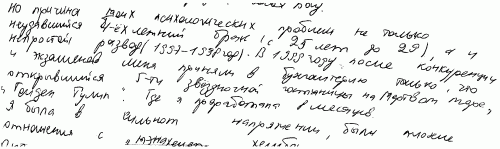 Но причина моих психологических проблем не только
неудавшийся 4-ёх летний брак (с 25 лет до 29), а и
непростой развод (1997-1998 год). В 1999 году после конкуренции
и экзаменов меня приняли в бухгалтерию только, что
открывшийся 5-ти звездночной гостиницы на Мёртвом море,
"Голден Тулип" где я проработала 8 месяцев
Я была в сильном напряжении, были плохие
отношения с